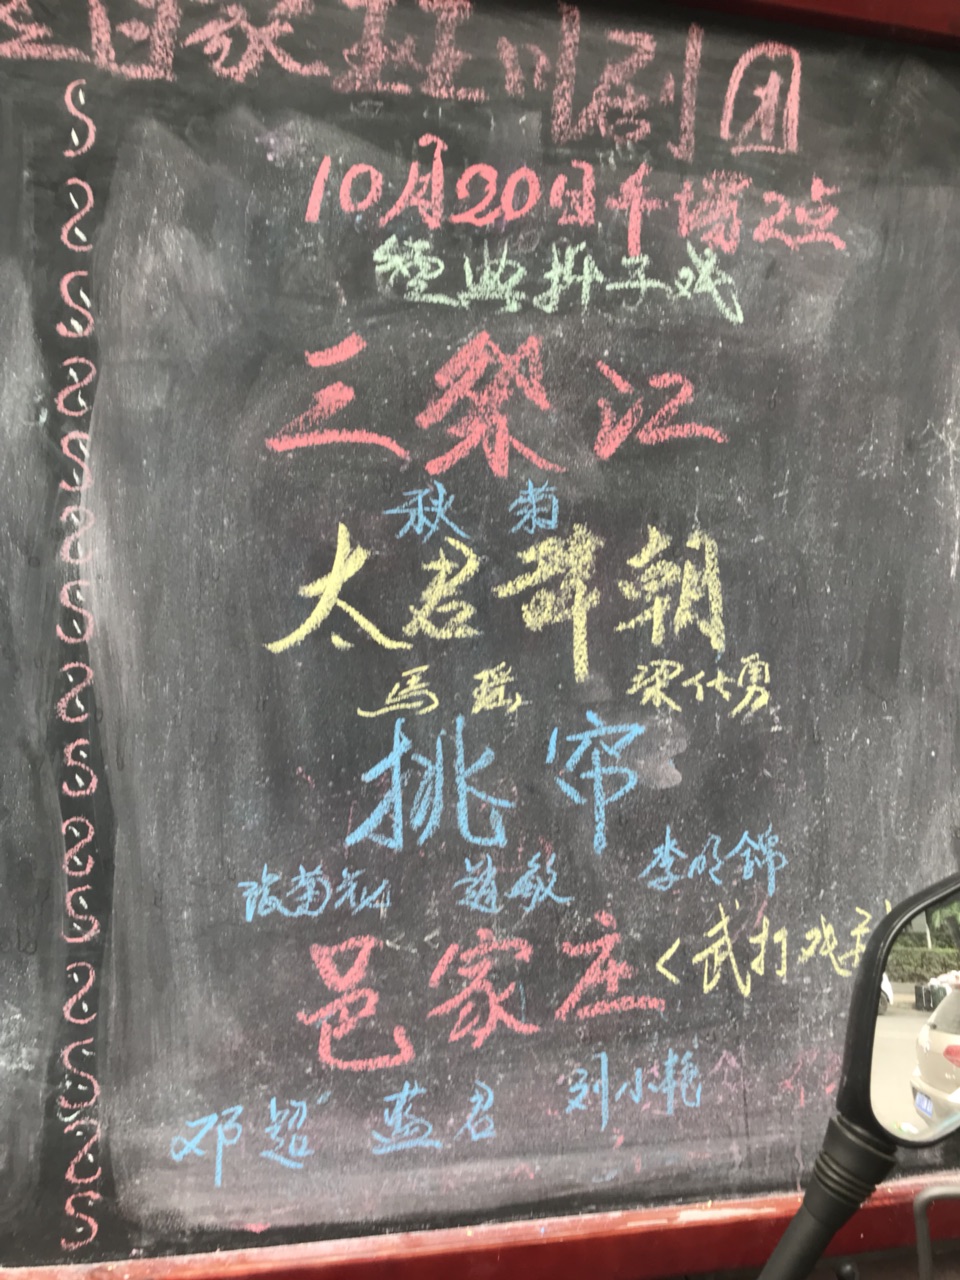 川剧团
10月20日午場2点
經典折子戏
三祭江
秋 菊
太君辞朝
馬瑶 梁仕勇
挑帘
敏 李明錦
邑家庄 <武打戏
邓超 蓝君 刘小艳